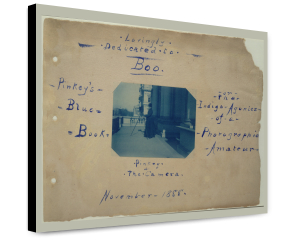 - Lovingly -
- Dedicated - to -
Boo.
- Pinkey's -
- Blue -
- Book -
- or -
- The -
- Indigo - Agonies -
- of - a -
- Photographic -
- Amateur -
- Pinkey -
- The Camera.
November - 1888 -